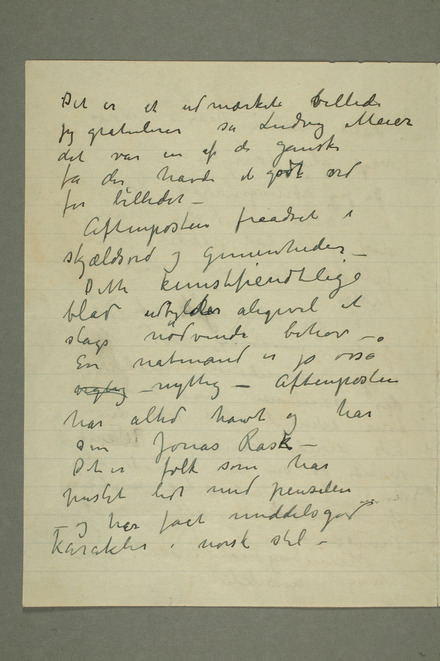 Det er et udmærkete billede
jeg gratulerer sa Ludvig Meier
det var en af de ganske
få der havde et godt ord
for billedet –
Aftenposten fraadset i
skjældsord og gemenheder –
Dette kunstfiendtlige
blad udfylder aligevel et
slags nødvende behov –
En natmand er jo også
vigtig – nyttig – Aftenposten
har altid havt og har
sin Jonas Rask –
Det er folk som har
pusslet lidt med penselen
– og har fået middelsgod
Karakter i norsk stil –